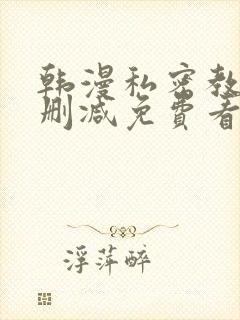 韩漫私密教
删减免费看
浮萍醉